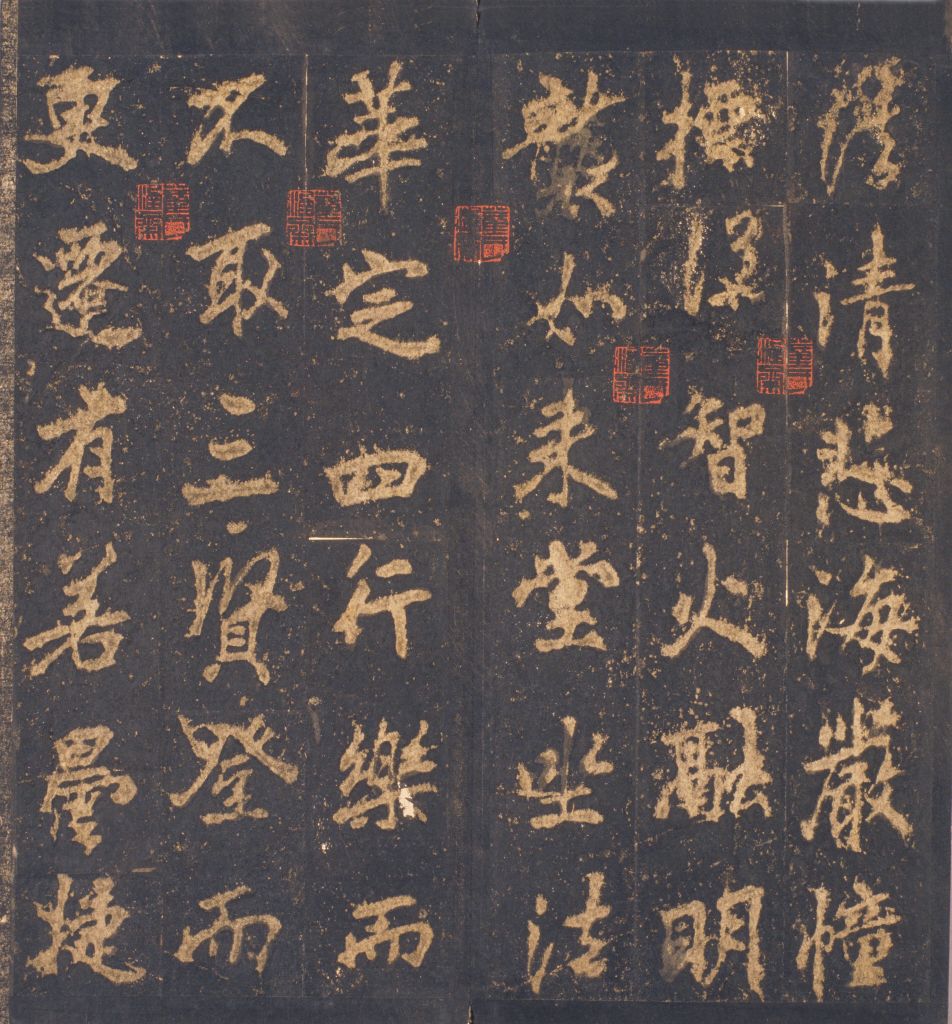 清悲海嚴幢
標智火融明
如来堂坐法
華定四行樂而
不取三賢登而
更遷有若曇捷